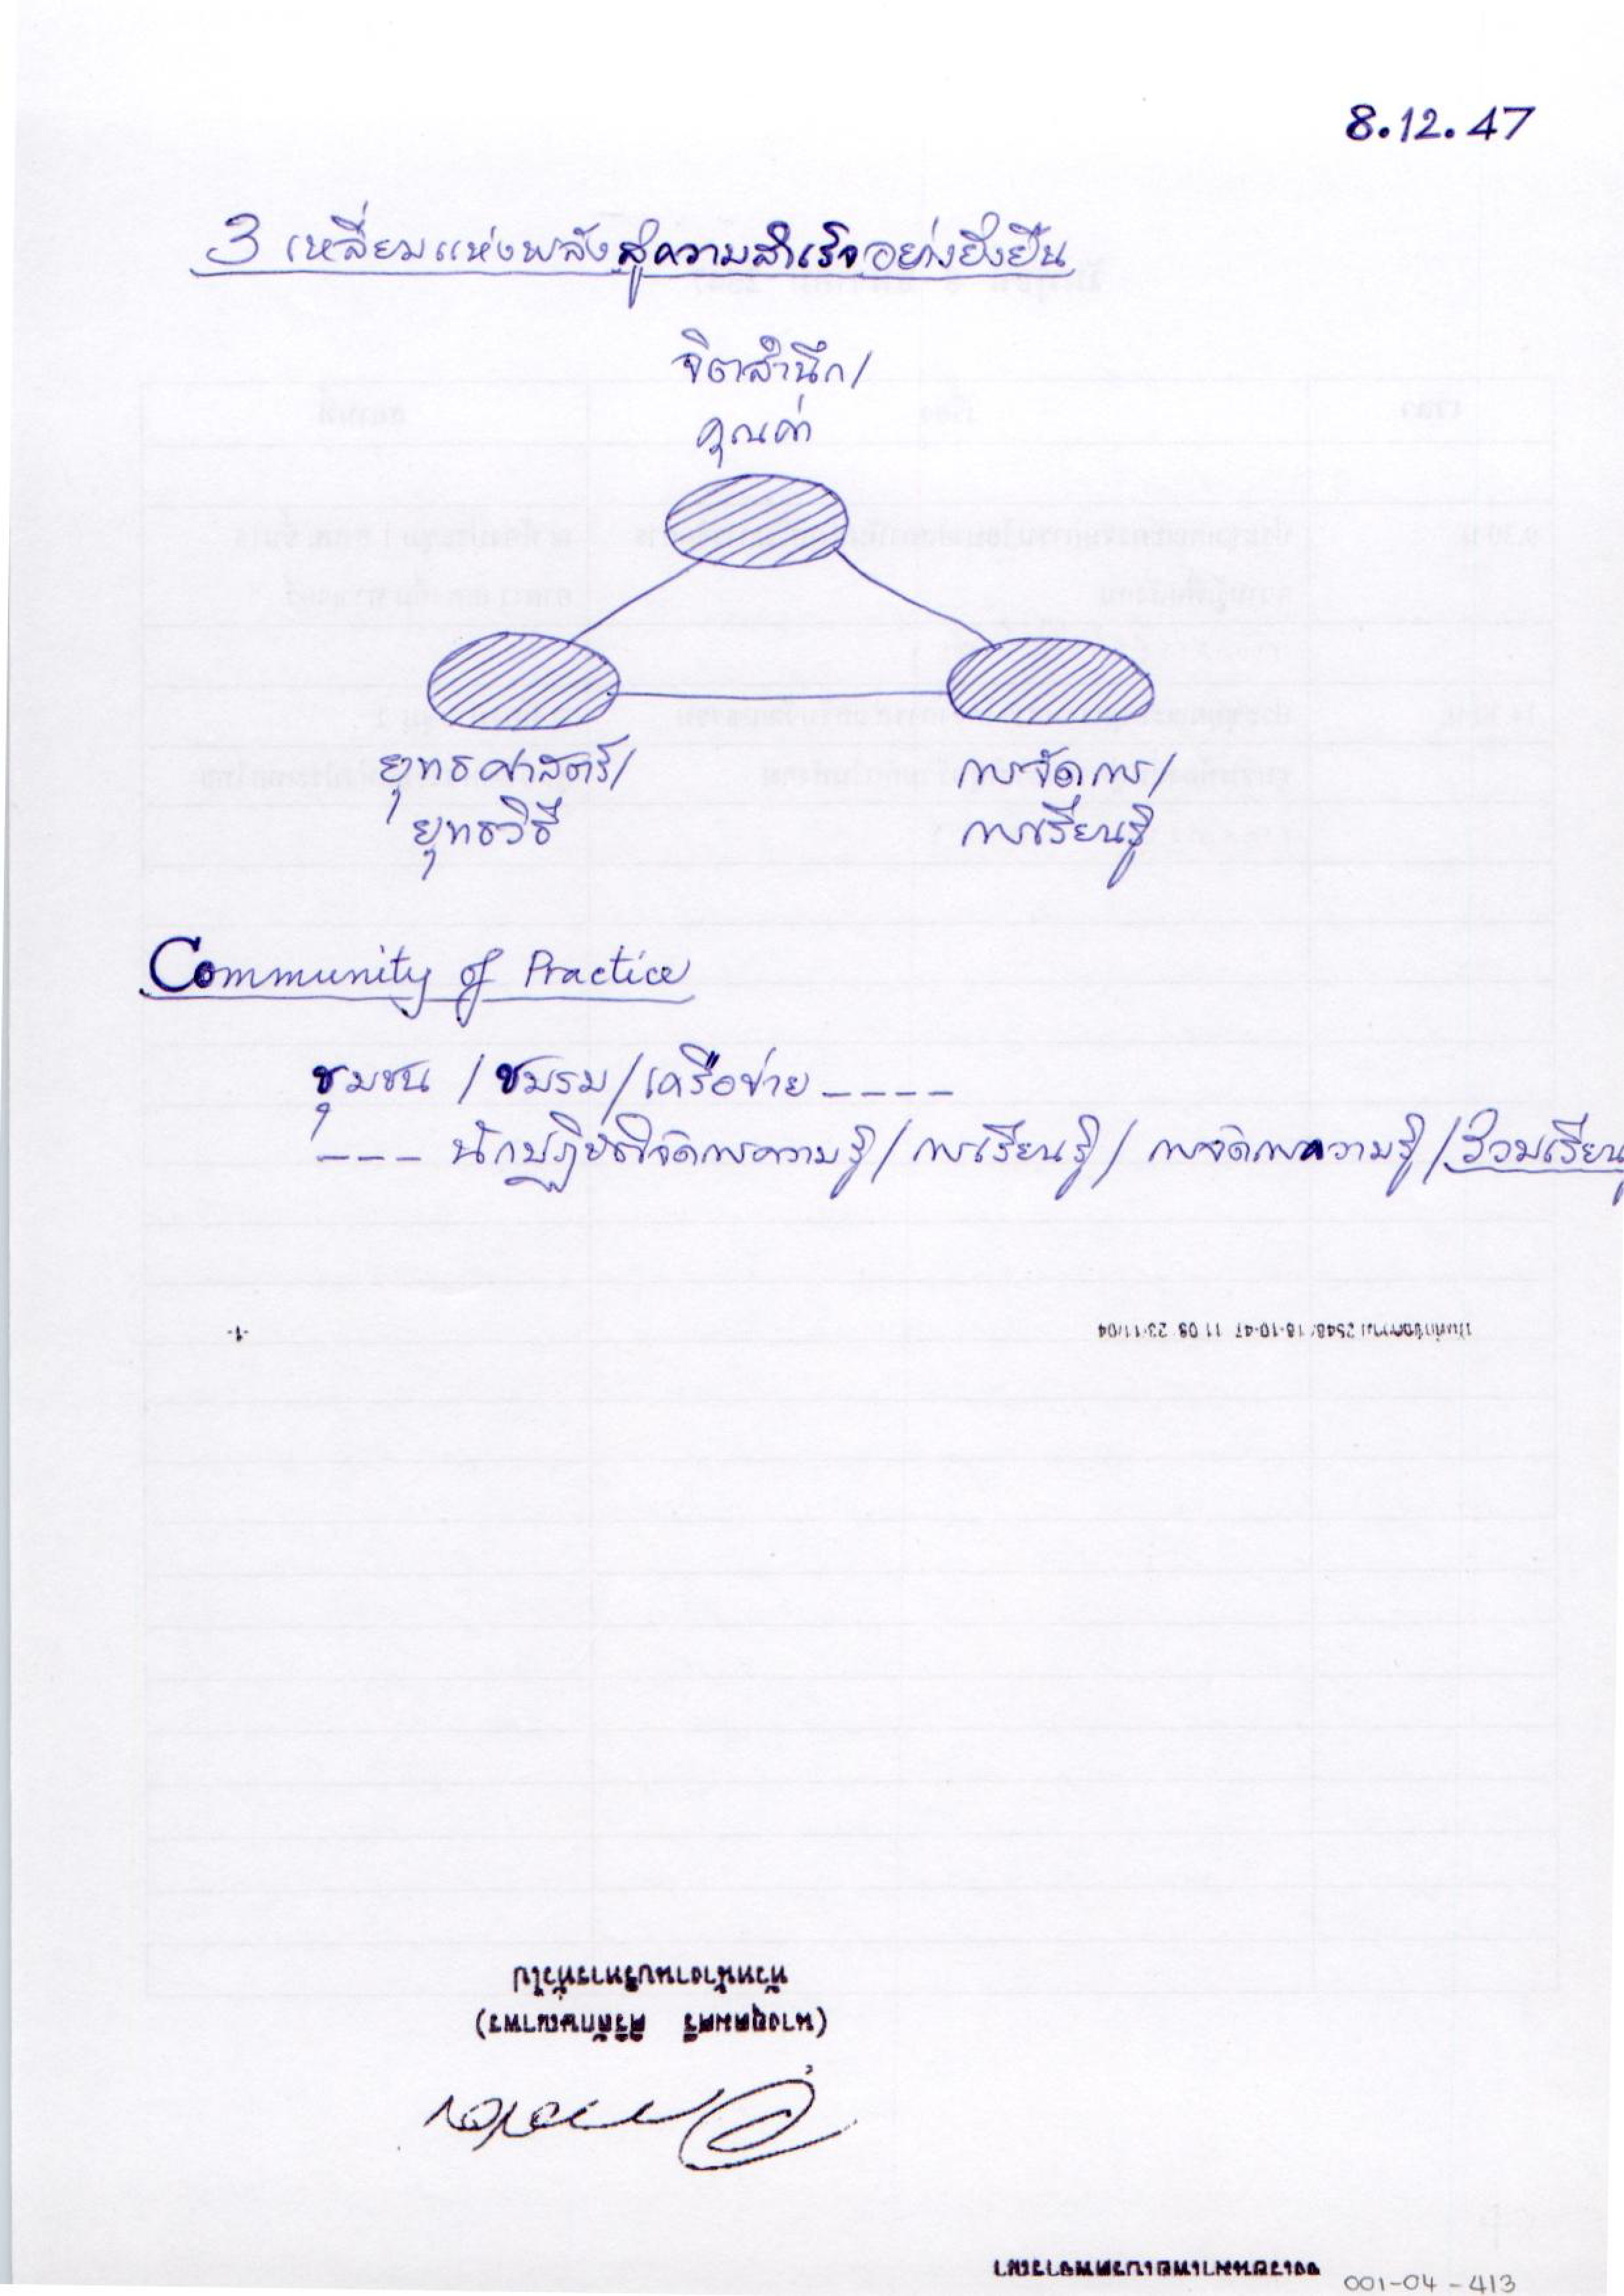 8.12.47
3 เหลี่ยมแห่งพลังสู่ความสำเร็จอย่างยั่งยืน
จิตสำนึก/
คุณค่า
ยุทธศาสตร์/
ยุทธวิธี
การจัดการ/
การเรียนรู้
Community of Practice
ชุมชน / ชมรม / เครือข่าย ----
--- นักปฏิบัติจัดการความรู้ / การเรียนรู้ / การจัดการความรู้ / ร่วมเรียน
-1-
หัวหน้างานบริหารทั่วไป
001-04-413